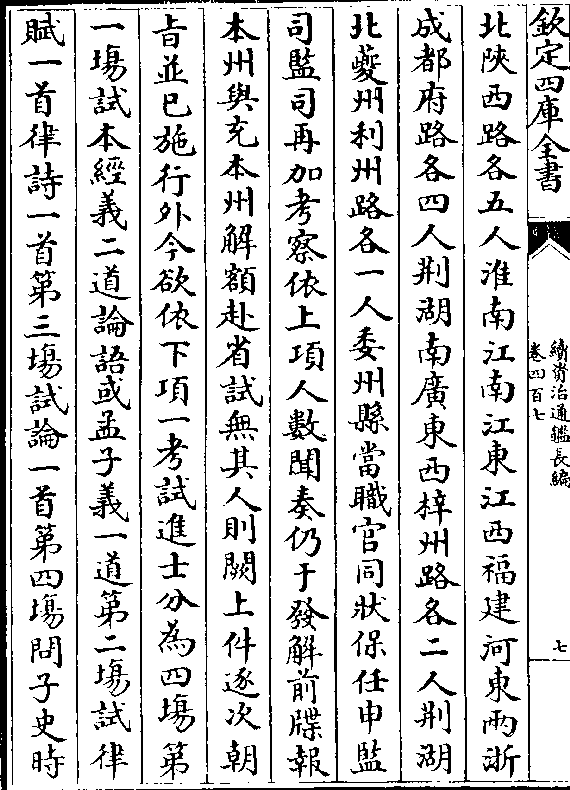 欽定四庫全書
續資治通鑑長編
卷四百七
七
北陝西路各五人淮南江南江東江西福建河東兩浙
成都府路各四人荆湖南廣東西梓州路各二人荆湖
北夔州利州路各一人委州縣當職官同狀保任申監
司監司再加考察依上項人數聞奏仍于發解前牒報
本州與充本州解額赴省試無其人則闕上件逐次朝
旨並已施行外今欲依下項一考試進士分為四場第
一場試本經義二道論語或孟子義一道第二場試律
賦一首律詩一首第三場試論一首第四場問子史時